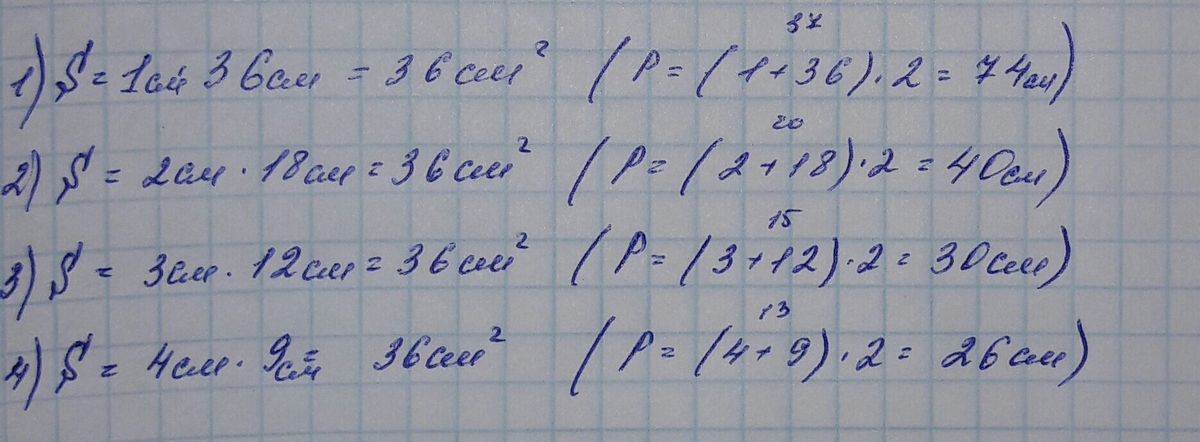 37
1) S = 1см · 36см = 36см² (P = (1+36)·2 = 74см)
20
2) S = 2см · 18см = 36см² (P = (2+18)·2 = 40см)
15
3) S = 3см · 12см = 36см² (P = (3+12)·2 = 30см)
13
4) S = 4см · 9см = 36см² (P = (4+9)·2 = 26см)